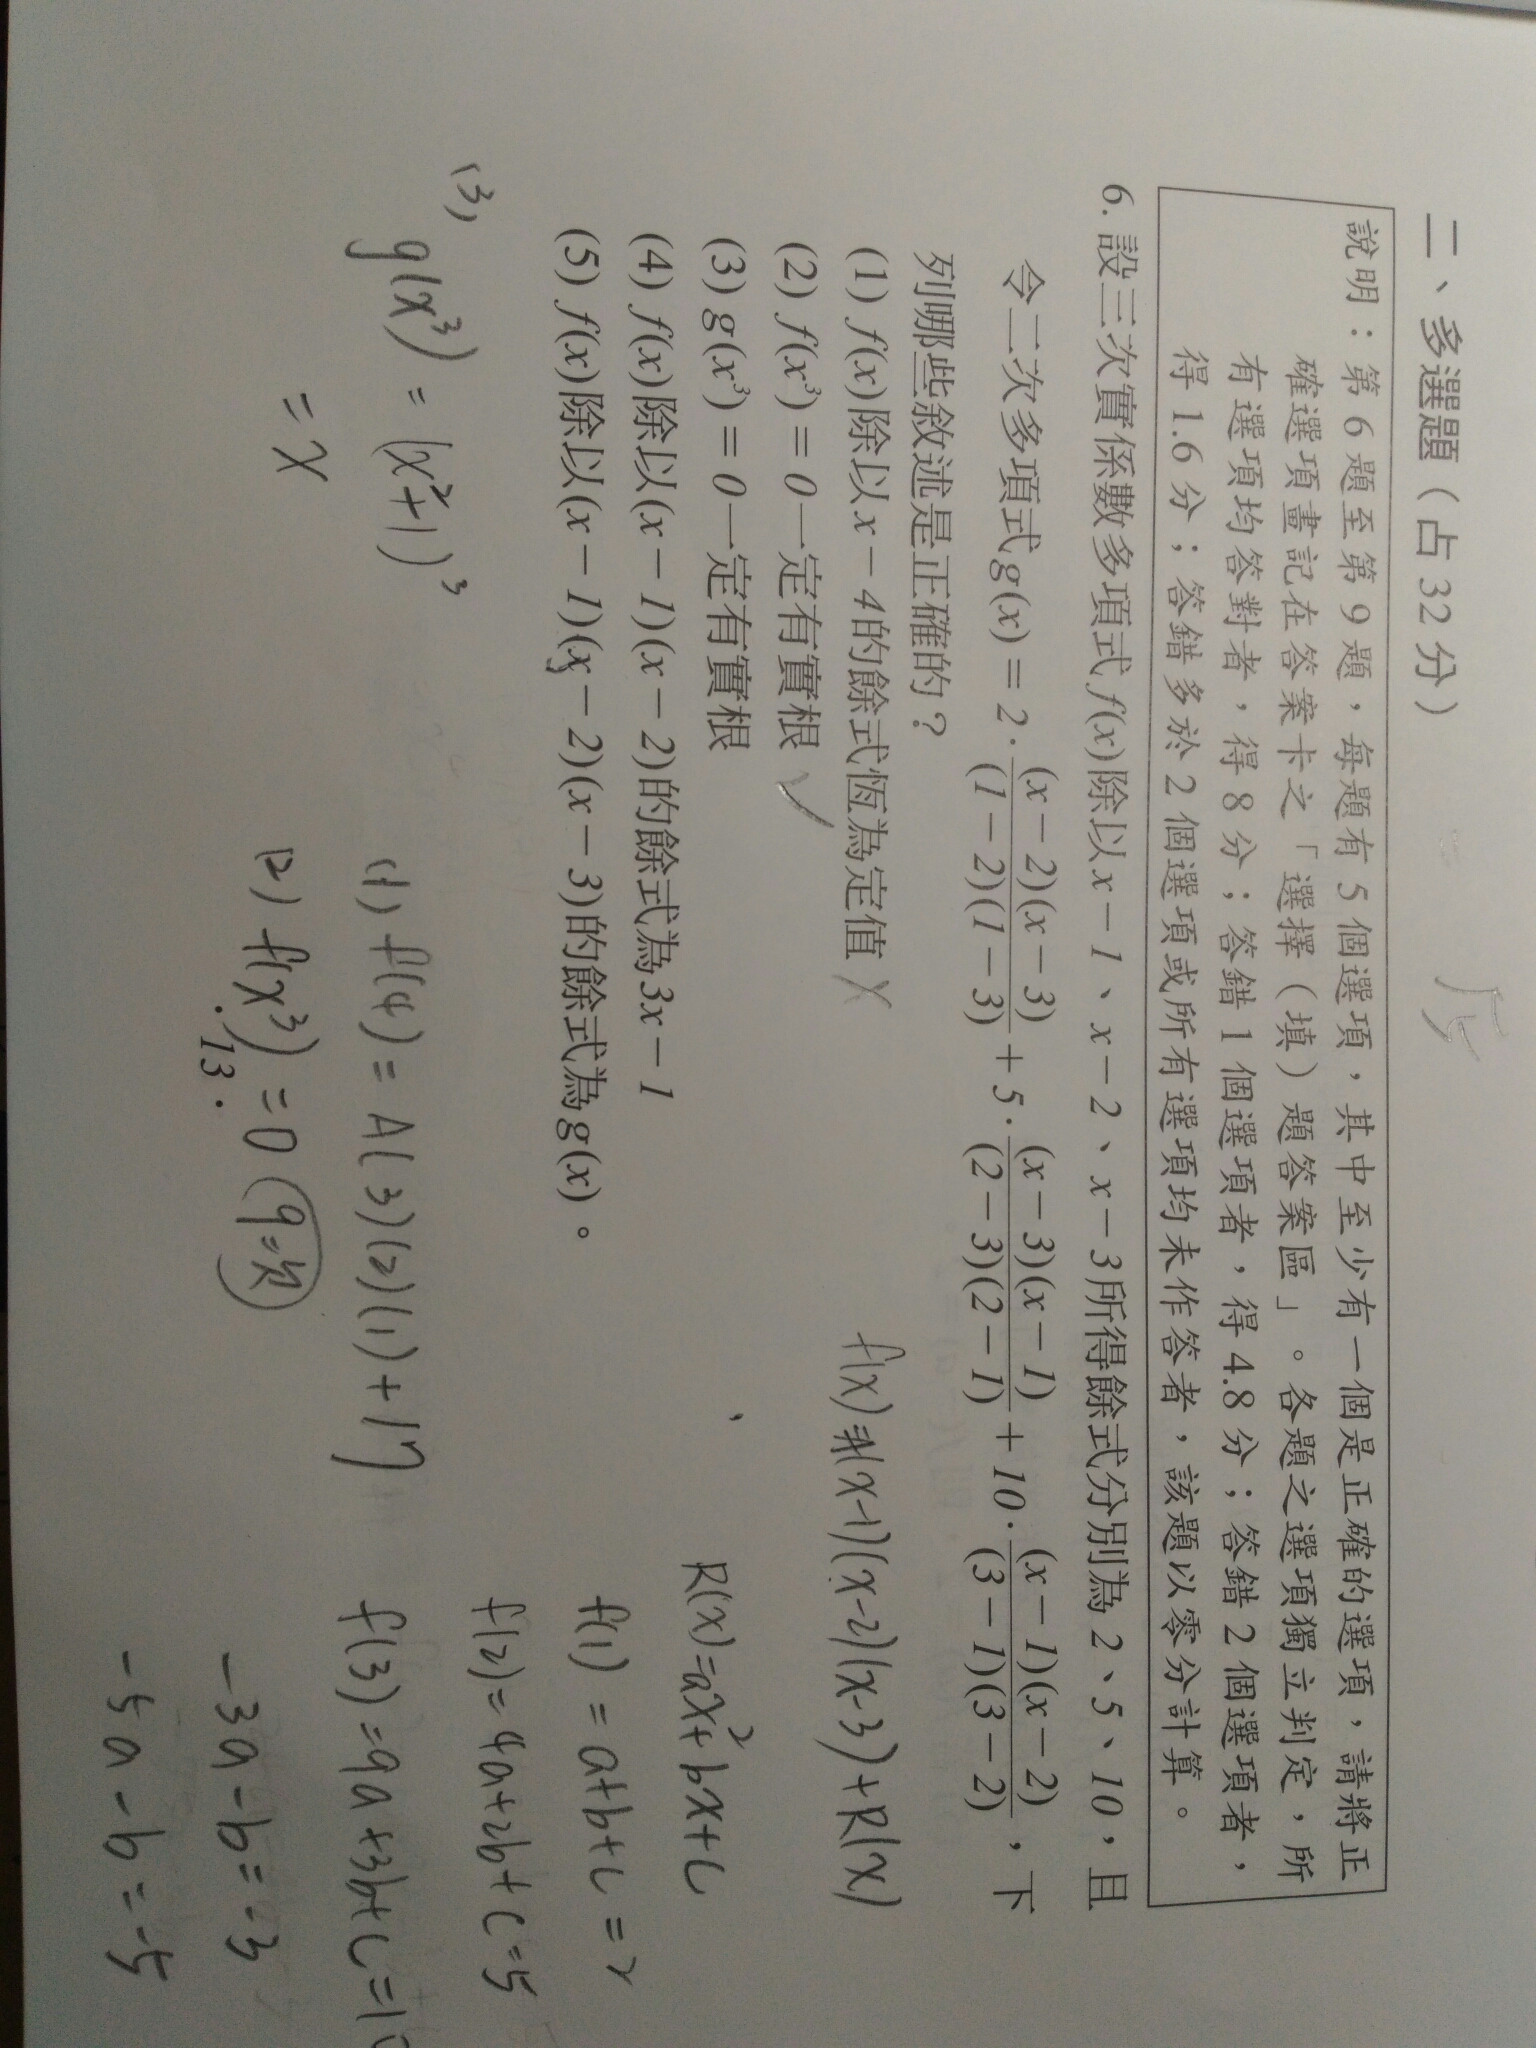 二、多選題（占32分）
說明：第6題至第9題，每題有5個選項，其中至少有一個是正確的選項，請將正
確選項畫記在答案卡之「選擇（填）題答案區」。各題之選項獨立判定，所
有選項均答對者，得8分；答錯1個選項者，得4.8分；答錯2個選項者，
得1.6分；答錯多於2個選項或所有選項均未作答者，該題以零分計算。
6. 設三次實係數多項式f(x)除以x－1、x－2、x－3所得餘式分別為2、5、10，且
令二次多項式g(x)＝2·(x－2)(x－3)/(1－2)(1－3)＋5·(x－3)(x－1)/(2－3)(2－1)＋10·(x－1)(x－2)/(3－1)(3－2)，下
列哪些敘述是正確的？
(1) f(x)除以x－4的餘式恆為定值 ×
(2) f(x³)＝0一定有實根 ✓
(3) g(x³)＝0一定有實根
(4) f(x)除以(x－1)(x－2)的餘式為3x－1
(5) f(x)除以(x－1)(x－2)(x－3)的餘式為g(x)。
f(x)=A(x-1)(x-2)(x-3)+R(x)
R(x)=ax²+bx+c
f(1)=a+b+c=2
f(2)=4a+2b+c=5
f(3)=9a+3b+c=10
-3a-b=-3
-5a-b=-5
(1) f(4)=A(3)(2)(1)+17
(2) f(x³)=0 (9=次)
(3)
g(x³)=(x²+1)³
=x